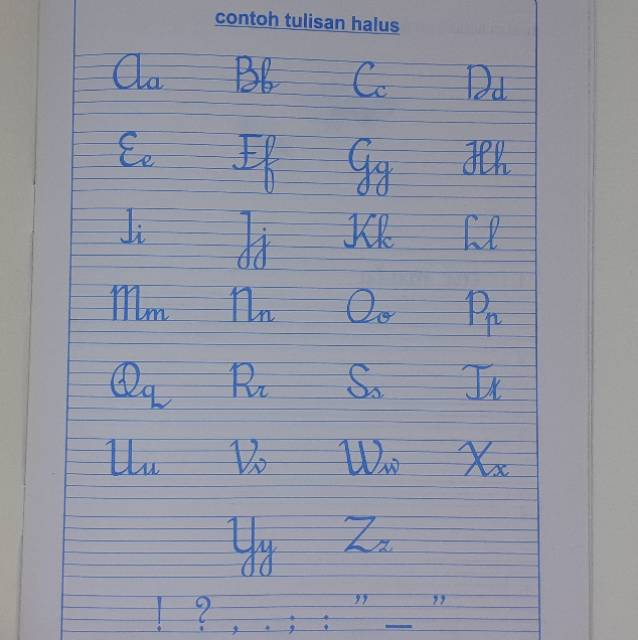 contoh tulisan halus
Aa Bb Cc Dd
Ee Ff Gg Hh
Ii Jj Kk Ll
Mm Nn Oo Pp
Qq Rr Ss Tt
Uu Vv Ww Xx
Yy Zz
! ? , . ; : " _ "